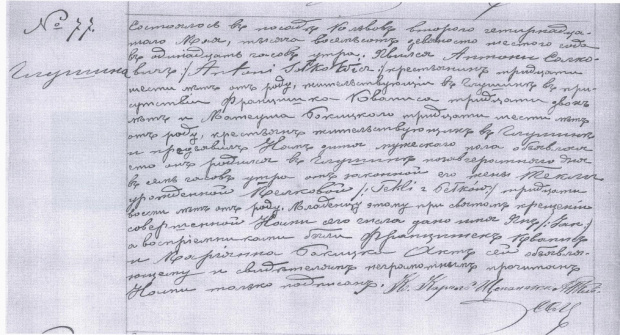 № 77.
Глушина
Состоялось въ посадѣ
мая, тысяча восемьсотъ девяносто шестого года
въ одинадцать часовъ утра. Явился Антони Сал-
вичъ / Antoni / крестьянинъ тридцати
шести лѣтъ отъ роду, жительствующій въ Глушинѣ въ при-
сутствіи Францишка Кваписа тридцати двухъ
лѣтъ и Матеуша Бакицкого тридцати шести лѣтъ
отъ роду, крестьянъ жительствующихъ въ Глушинѣ
и предъявилъ Намъ дитя мужескаго пола объявляя
что онъ родился въ Глушинѣ дня
въ семь часовъ утра отъ законной его жены Теклы
урожденной тридцати
лѣтъ отъ роду. Младенцу этому при святомъ крещеніи
совершенномъ Нами сего числа дано имя Янъ / Jan /
а воспріемниками были Францишекъ Кваписъ
и Марьянна Бакицка. Актъ сей объявля-
ющему и свидѣтелямъ неграмотнымъ прочитанъ
Нами только подписанъ.